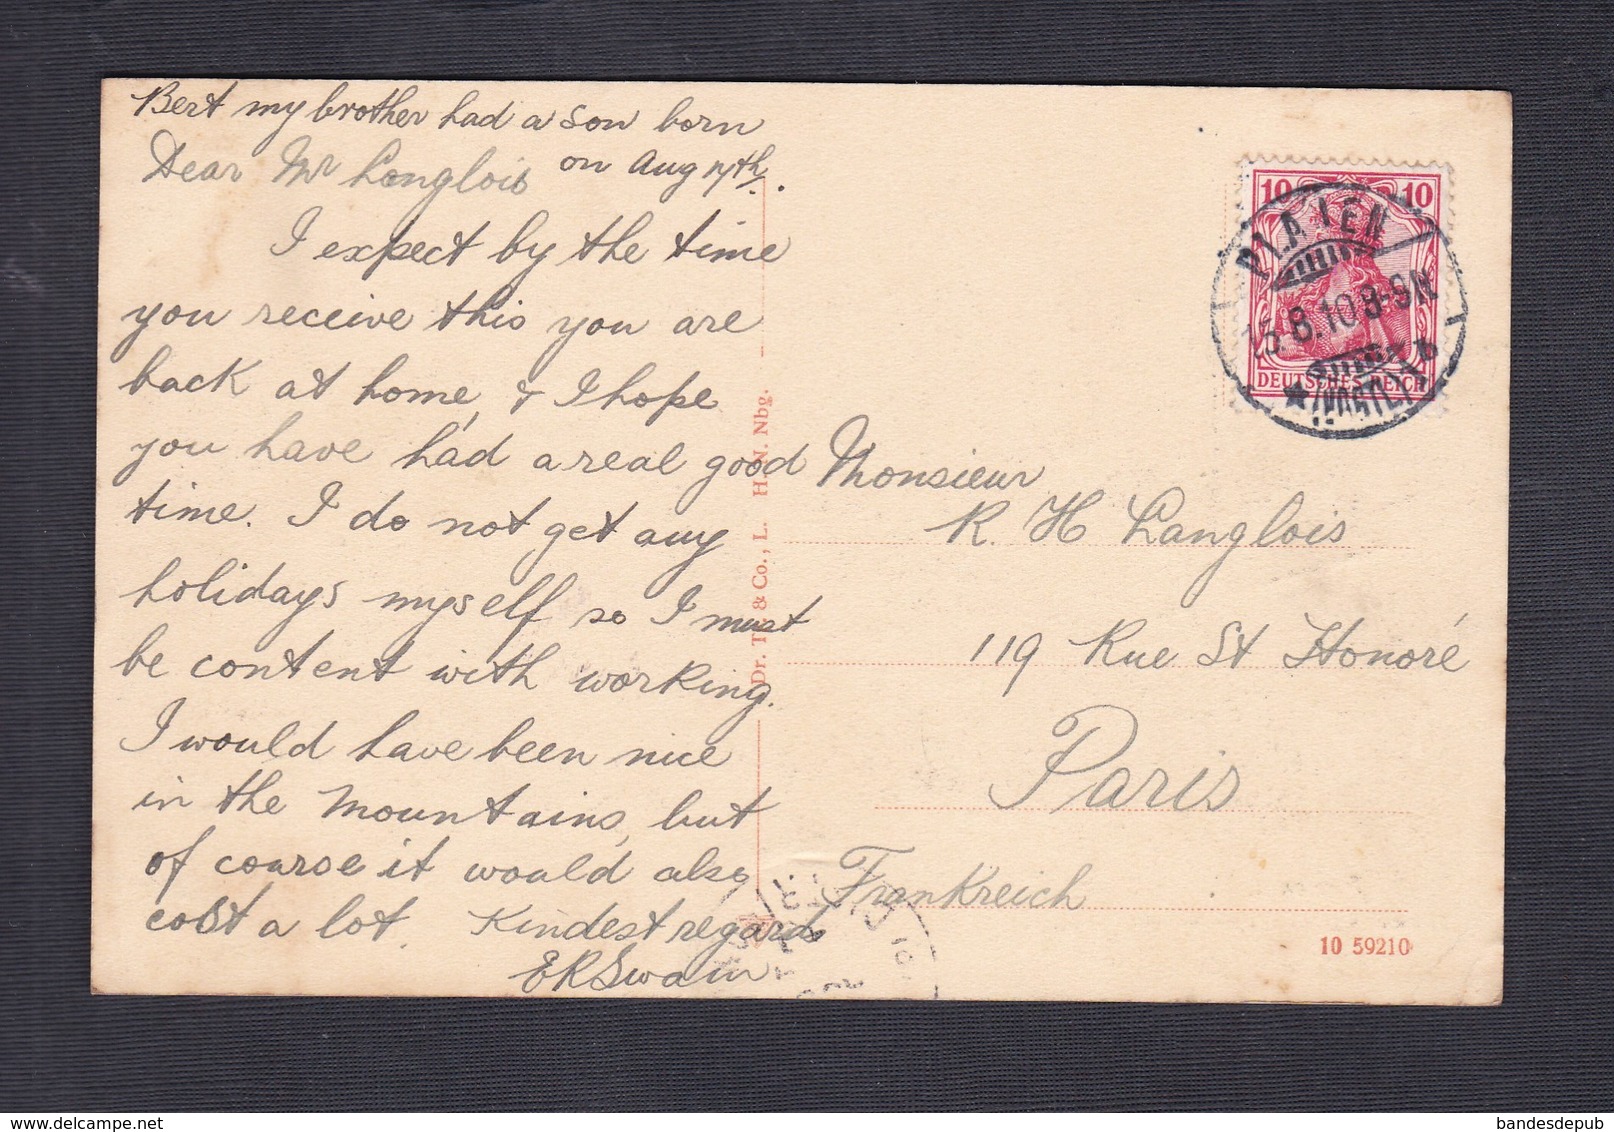 Bert my brother had a son born
on Aug 17th.
Dear Mr Langlois
I expect by the time
you receive this you are
back at home, & I hope
you have had a real good
time. I do not get any
holidays myself so I must
be content with working.
I would have been nice
in the Mountains, but
of course it would also
cost a lot. Kindest regards
ERSwain
Dr. T & Co., L. H. N. Nbg.
10 10
DEUTSCHES REICH
15.8.10 8-9N
Monsieur
R. H Langlois
119 Rue St Honoré
Paris
Frankreich
10 59210
bandesdepub